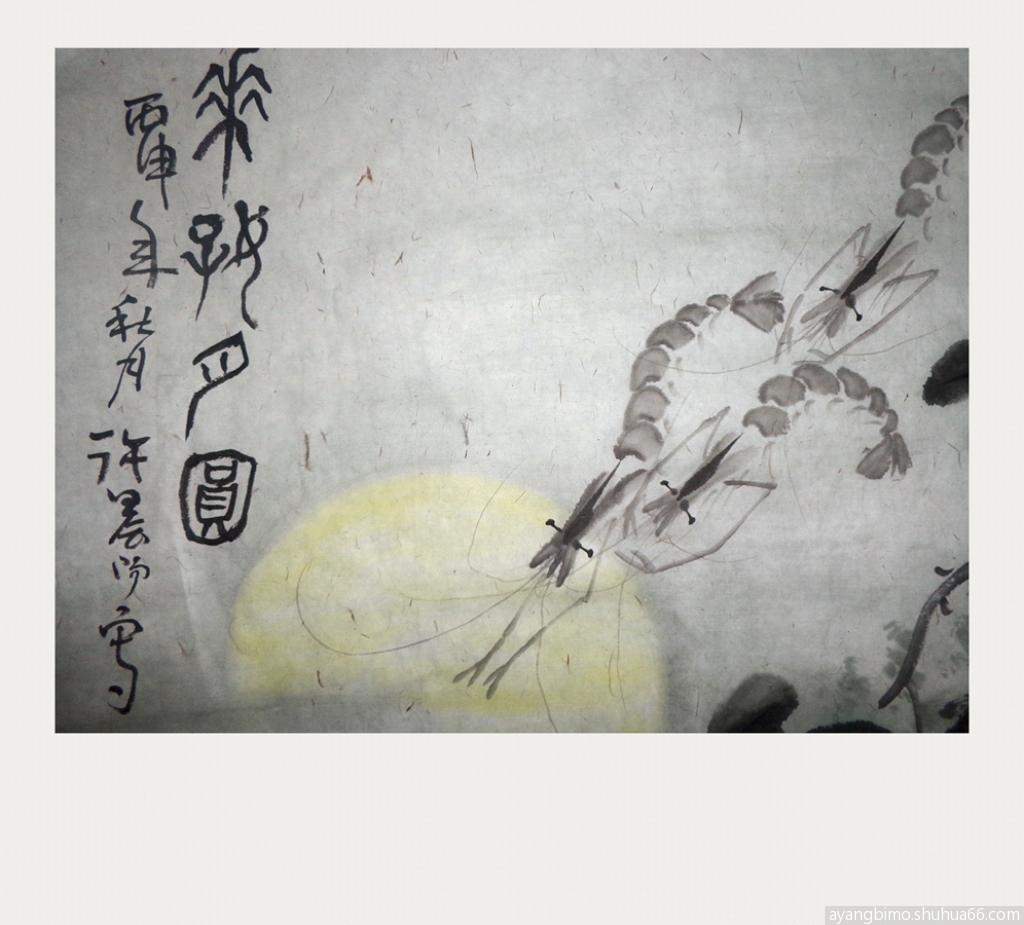 華好月圓
丙申年秋月许晨阳写
ayangbimo.shuhua66.com